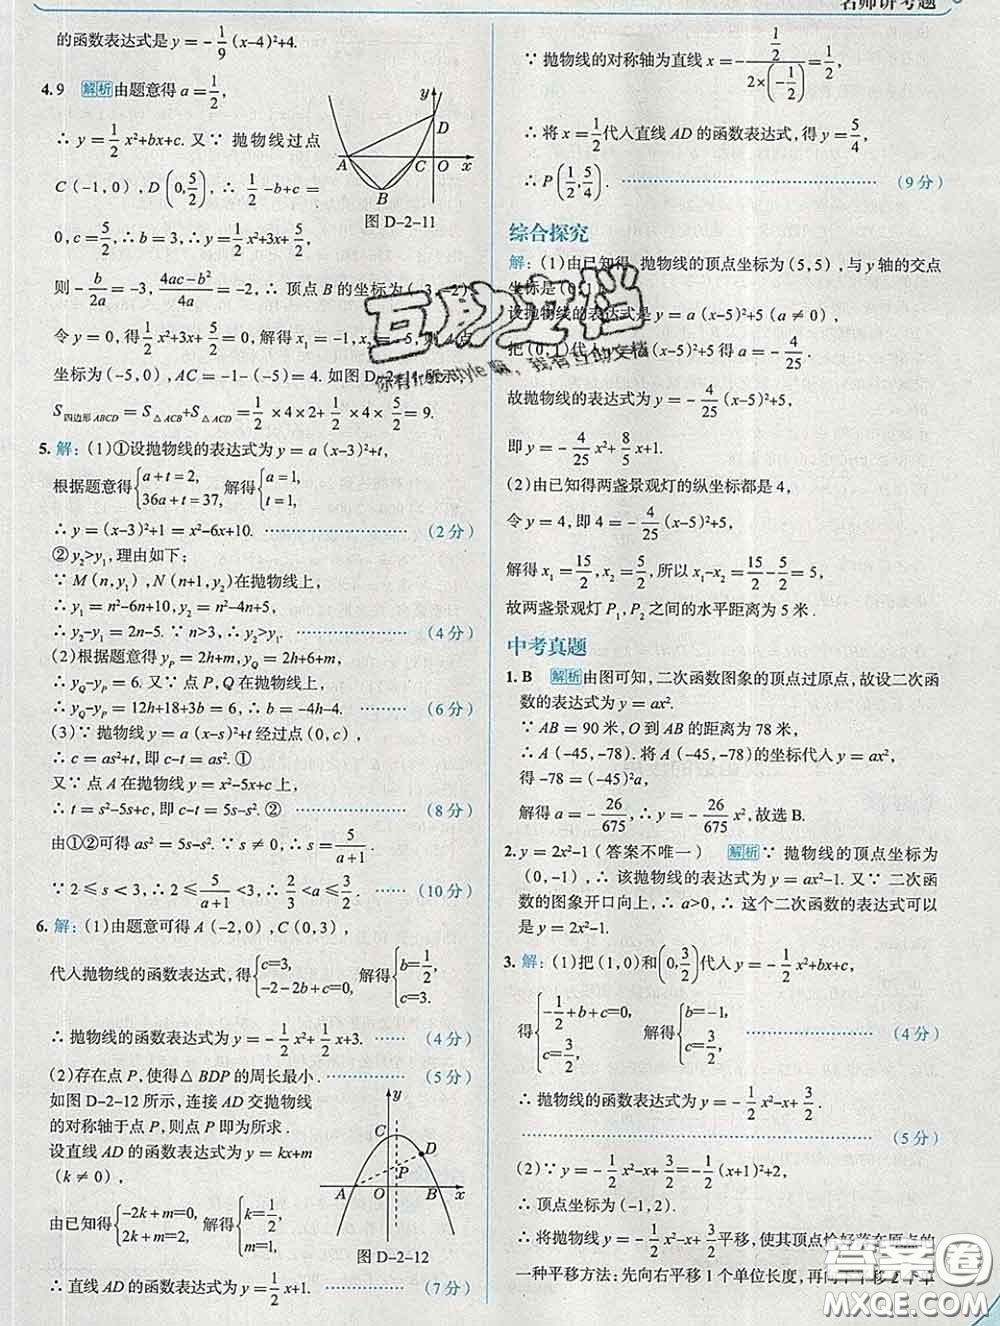 名师讲考题
的函数表达式是 y=-1/9(x-4)²+4.
4.9 解析 由题意得 a=1/2,
∴ y=1/2x²+bx+c. 又∵ 抛物线过点
C(-1,0),D(0,5/2),∴ 1/2-b+c=
0,c=5/2,∴ b=3,∴ y=1/2x²+3x+5/2,
则-b/2a=-3,(4ac-b²)/4a=-2,∴ 顶点 B 的坐标为(-3,-2).
令 y=0,得1/2x²+3x+5/2=0,解得 x₁=-1,x₂=-5,则 A 点
坐标为(-5,0),AC=-1-(-5)=4. 如图 D-2-11 所示,
S四边形ABCD=S△ACB+S△ACD=1/2×4×2+1/2×4×5/2=9.
y
D
A
C
O
x
B
图 D-2-11
5. 解:(1)①设抛物线的表达式为 y=a(x-3)²+t,
根据题意得{a+t=2, 36a+t=37, 解得{a=1, t=1,
∴ y=(x-3)²+1=x²-6x+10. (2分)
②y₂>y₁,理由如下:
∵ M(n,y₁),N(n+1,y₂)在抛物线上,
∴ y₁=n²-6n+10,y₂=n²-4n+5,
∴ y₂-y₁=2n-5. ∵ n>3,∴ y₂>y₁. (4分)
(2)根据题意得 yP=2h+m,yQ=2h+6+m,
∴ yQ-yP=6. 又∵ 点 P,Q 在抛物线上,
∴ yQ-yP=12h+18+3b=6,∴ b=-4h-4. (6分)
(3)∵ 抛物线 y=a(x-s)²+t 经过点(0,c),
∴ c=as²+t,即 c-t=as². ①
又∵ 点 A 在抛物线 y=x²-5x+c 上,
∴ t=s²-5s+c,即 c-t=5s-s². ② (8分)
由①②可得 as²=5s-s². ∵ s≠0,∴ s=5/(a+1).
∵ 2≤s<3,∴ 2≤5/(a+1)<3,∴ 2/3<a≤3/2. (10分)
6. 解:(1)由题意可得 A(-2,0),C(0,3),
代入抛物线的函数表达式,得{c=3, -2-2b+c=0, 解得{b=1/2, c=3.
∴ 抛物线的函数表达式为 y=-1/2x²+1/2x+3. (4分)
(2)存在点 P,使得△BDP 的周长最小. (5分)
如图 D-2-12 所示,连接 AD 交抛物线
的对称轴于点 P,则点 P 即为所求.
设直线 AD 的函数表达式为 y=kx+m
(k≠0),
由已知得{-2k+m=0, 2k+m=2, 解得{k=1/2, m=1,
∴ 直线 AD 的函数表达式为 y=1/2x+1. (7分)
y
C
D
P
A
O
B
x
图 D-2-12
∵ 抛物线的对称轴为直线 x=-(1/2)/(2×(-1/2))=1/2,
∴ 将 x=1/2代入直线 AD 的函数表达式,得 y=5/4,
∴ P(1/2,5/4). (9分)
综合探究
解:(1)由已知得,抛物线的顶点坐标为(5,5),与 y 轴的交点
坐标是(0,1).
设抛物线的表达式是 y=a(x-5)²+5(a≠0),
把(0,1)代入 y=a(x-5)²+5 得 a=-4/25,
故抛物线的表达式为 y=-4/25(x-5)²+5,
即 y=-4/25x²+8/5x+1.
(2)由已知得两盏景观灯的纵坐标都是 4,
令 y=4,即 4=-4/25(x-5)²+5,
解得 x₁=15/2,x₂=5/2,所以 x₁-x₂=15/2-5/2=5,
故两盏景观灯 P₁,P₂ 之间的水平距离为 5 米.
中考真题
1. B 解析 由图可知,二次函数图象的顶点过原点,故设二次函
数的表达式为 y=ax².
∵ AB=90 米,O 到 AB 的距离为 78 米,
∴ A(-45,-78). 将 A(-45,-78)的坐标代入 y=ax²,
得-78=(-45)²a,
解得 a=-26/675,∴ y=-26/675x²,故选 B.
2. y=2x²-1(答案不唯一) 解析 ∵ 抛物线的顶点坐标为
(0,-1),∴ 该抛物线的表达式为 y=ax²-1. 又∵ 二次函
数的图象开口向上,∴ a>0,∴ 这个二次函数的表达式可以
是 y=2x²-1.
3. 解:(1)把(1,0)和(0,3/2)代入 y=-1/2x²+bx+c,
得{-1/2+b+c=0, c=3/2, 解得{b=-1, c=3/2, (4分)
∴ 抛物线的函数表达式为 y=-1/2x²-x+3/2.
(5分)
(2)∵ y=-1/2x²-x+3/2=-1/2(x+1)²+2,
∴ 顶点坐标为(-1,2).
∴ 将抛物线 y=-1/2x²-x+3/2平移,使其顶点恰好落在原点的
一种平移方法:先向右平移 1 个单位长度,再向下平移 2 个单
互助文档
你有仆従style嘛,我有互助文档
答案圈
MXQE.COM